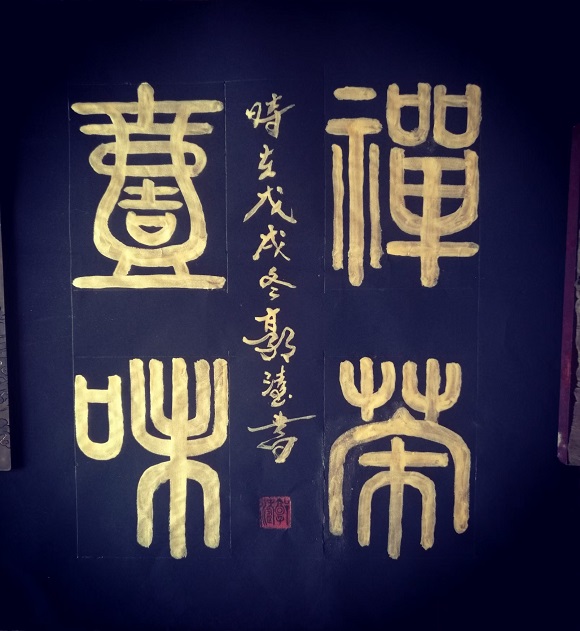 禪茶
壹味
時在戊戌冬郭書